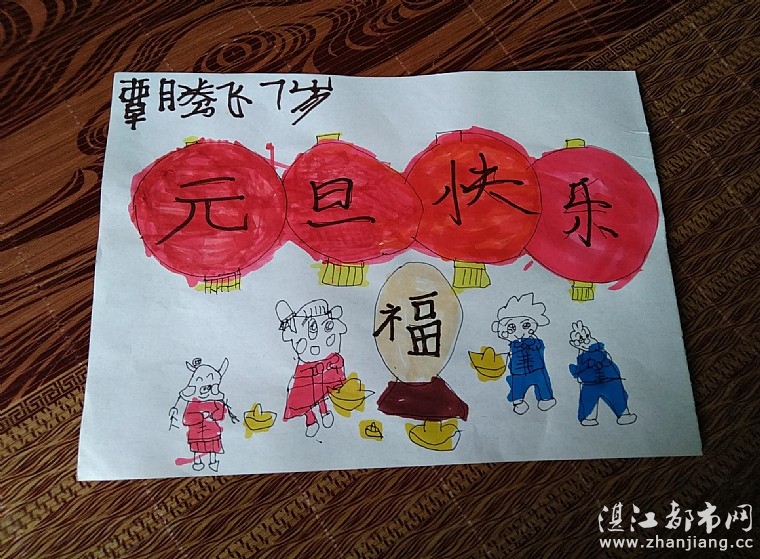 覃腾飞 7岁
元旦快乐
福
湛江都市网
www.zhanjiang.cc